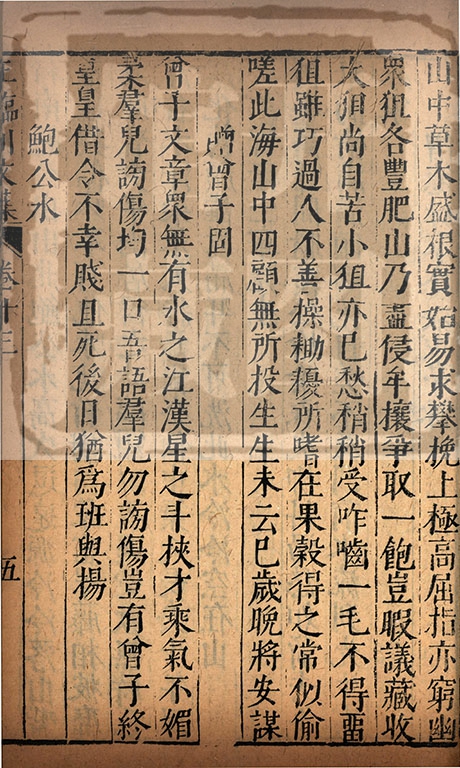 山中草木盛根實始易求攀挽上極高屈指亦窮幽
衆狙各豐肥山乃盡侵牟攘爭取一飽豈暇議藏收
大狙尚自苦小狙亦已愁稍稍受咋嚙一毛不得畱
狙雖巧過人不善操耡耰所嗜在果穀得之常似偷
嗟此海山中四顧無所投生生未云已歲晚將安謀
贈曾子固
曾子文章衆無有水之江漢星之斗挾才乘氣不媚
柔羣兒謗傷均一口吾語羣兒勿謗傷豈有曾子終
皇皇借令不幸賤且死後日猶爲班與揚
鮑公水
臨川文集 卷十 五